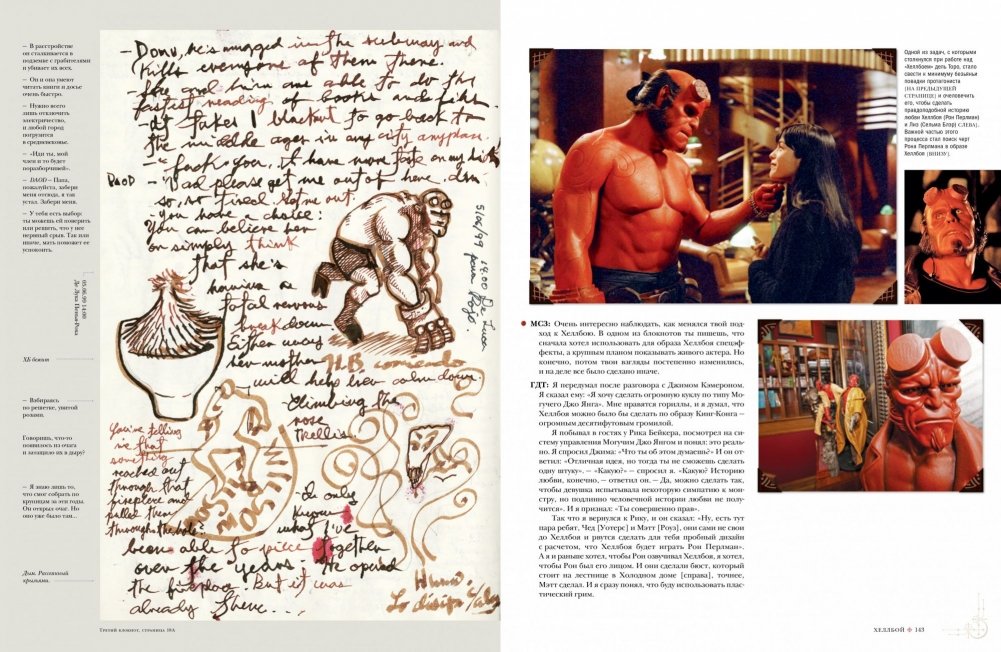 — В расстройстве
он сталкивается в
подземке с грабителями
и убивает их всех.
— Он и она умеют
читать книги и досье
очень быстро.
— Нужно всего
лишь отключить
электричество,
и любой город
погрузится
в средневековье.
— «Иди ты, мой
член и то будет
поразборчивей».
— DAOD — Папа,
пожалуйста, забери
меня отсюда, я так
устал. Забери меня.
— У тебя есть выбор:
ты можешь ей поверить
или решить, что у нее
нервный срыв. Так или
иначе, мать поможет ее
успокоить.
05.06.99 14:00
ХБ боится
Взбираясь
по решетке, увитой
розами.
Говоришь, что-то
появилось из очага
и затащило их в дыру?
— Я знаю лишь то,
что смог собрать по
крупицам за эти годы.
Он открыл очаг. Но
оно уже было там...
Дым. Рассеянный
крыльями.
he's mugged in the subway and
kills everyone of them there.
able to do the
fastest reading of books and
it takes 1 blackout to go back to
the middle ages in any city anyplace.
fuck you, it have more
DAOD — Dad please get me out of here.
so, so tired. Let me out.
you have a choice:
You can believe her
or simply think
that she's
having a
total nervous
breakdown
Either way
her mother
will help her calm down.
H.B.
5/06/99
14:00 De Luca
para Rojo
Climbing the
rose
trellis
You're telling
me that
something
reached out
through that
fireplace and
pulled them
through the hole?
I only
know
what I've
been able to piece together
over the years. He opened
the fireplace. But it was
already there...
Humo.
Lo disipa c/alas
Третий блокнот, страница 19А
Одной из задач, с которыми
столкнулся при работе над
«Хеллбоем» дель Торо, стало
свести к минимуму безьяньи
повадки протагониста
[НА ПРЕДЫДУЩЕЙ
СТРАНИЦЕ] и очеловечить
его, чтобы сделать
правдоподобной историю
любви Хеллбоя (Рон Перлман)
и Лиз (Сельма Блэр) [СЛЕВА].
Важной частью этого
процесса стал поиск черт
Рона Перлмана в образе
Хеллбоя [ВНИЗУ].
МСЗ: Очень интересно наблюдать, как менялся твой под-
ход к Хеллбою. В одном из блокнотов ты пишешь, что
сначала хотел использовать для образа Хеллбоя спецэф-
фекты, а крупным планом показывать живого актера. Но
конечно, потом твои взгляды постепенно изменились,
и на деле все было сделано иначе.
ГДТ: Я передумал после разговора с Джимом Кэмероном.
Я сказал ему: «Я хочу сделать огромную куклу по типу Мо-
гучего Джо Янга». Мне нравятся гориллы, и я думал, что
Хеллбоя можно было бы сделать по образу Кинг-Конга —
огромным десятифутовым громилой.
Я побывал в гостях у Рика Бейкера, посмотрел на си-
стему управления Могучим Джо Янгом и понял: это реаль-
но. Я спросил Джима: «Что ты об этом думаешь?» И он от-
ветил: «Отличная идея, но тогда ты не сможешь сделать
одну штуку». — «Какую?» — спросил я. «Какую? Историю
любви, конечно, — ответил он. — Да, можно сделать так,
чтобы девушка испытывала некоторую симпатию к мон-
стру, но подлинно человечной истории любви не полу-
чится». И я признал: «Ты совершенно прав».
Так что я вернулся к Рику, и он сказал: «Ну, есть тут
пара ребят, Чед [Уотерс] и Мэтт [Роуз], они сами не свои
до Хеллбоя и рвутся сделать для тебя пробный дизайн
с расчетом, что Хеллбоя будет играть Рон Перлман».
А я и раньше хотел, чтобы Рон озвучивал Хеллбоя, я хотел,
чтобы Рон был его лицом. И они сделали бюст, который
стоит на лестнице в Холодном доме [справа], точнее,
Мэтт сделал. И я сразу понял, что буду использовать плас-
тический грим.
ХЕЛЛБОЙ 143